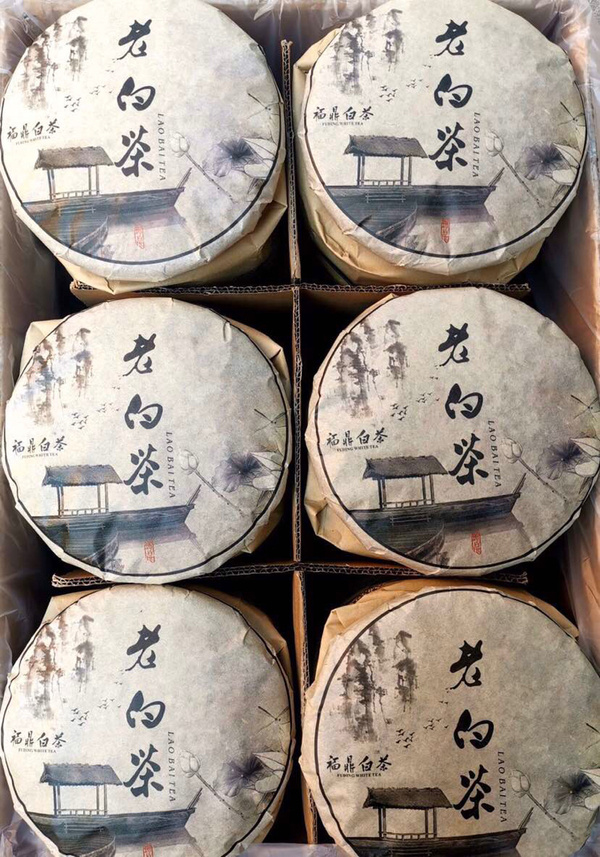 老白茶
LAO BAI TEA
福鼎白茶
FUDING WHITE TEA
老白茶
LAO BAI TEA
福鼎白茶
FUDING WHITE TEA
老白茶
LAO BAI TEA
福鼎白茶
FUDING WHITE TEA
老白茶
LAO BAI TEA
福鼎白茶
FUDING WHITE TEA
老白茶
LAO BAI TEA
福鼎白茶
FUDING WHITE TEA
老白茶
LAO BAI TEA
福鼎白茶
FUDING WHITE TEA